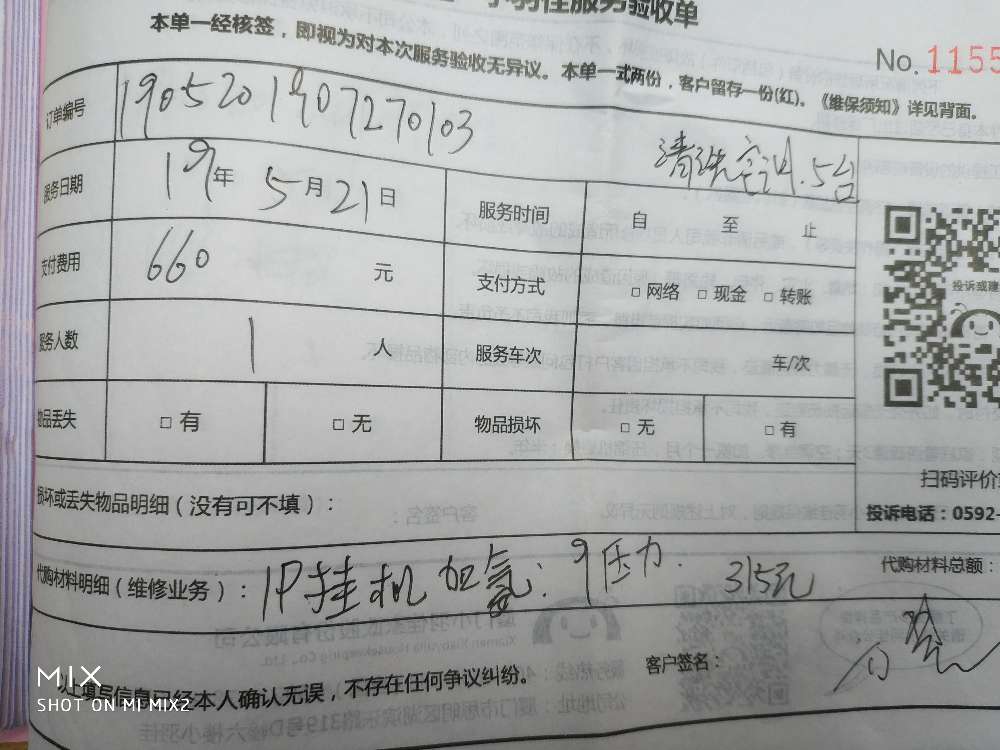 小羽佳服务验收单
本单一经核签，即视为对本次服务验收无异议。本单一式两份，客户留存一份(红)。《维保须知》详见背面。
No. 1155
订单编号 190520190727010103
清洗空调.5台
服务日期 19年 5月21日 服务时间 自 至 止
支付费用 660 元 支付方式 □ 网络 □ 现金 □ 转账
服务人数 1 人 服务车次 车/次
物品丢失 □ 有 □ 无 物品损坏 □ 无 □ 有
投诉或建
扫码评价
投诉电话：0592-
损坏或丢失物品明细（没有可不填）：
代购材料明细（维修业务）： 1P挂机 加氟：9压力. 315元
代购材料总额：
客户签名：
以上填写信息已经本人确认无误，不存在任何争议纠纷。
MIX
SHOT ON MI MIX2